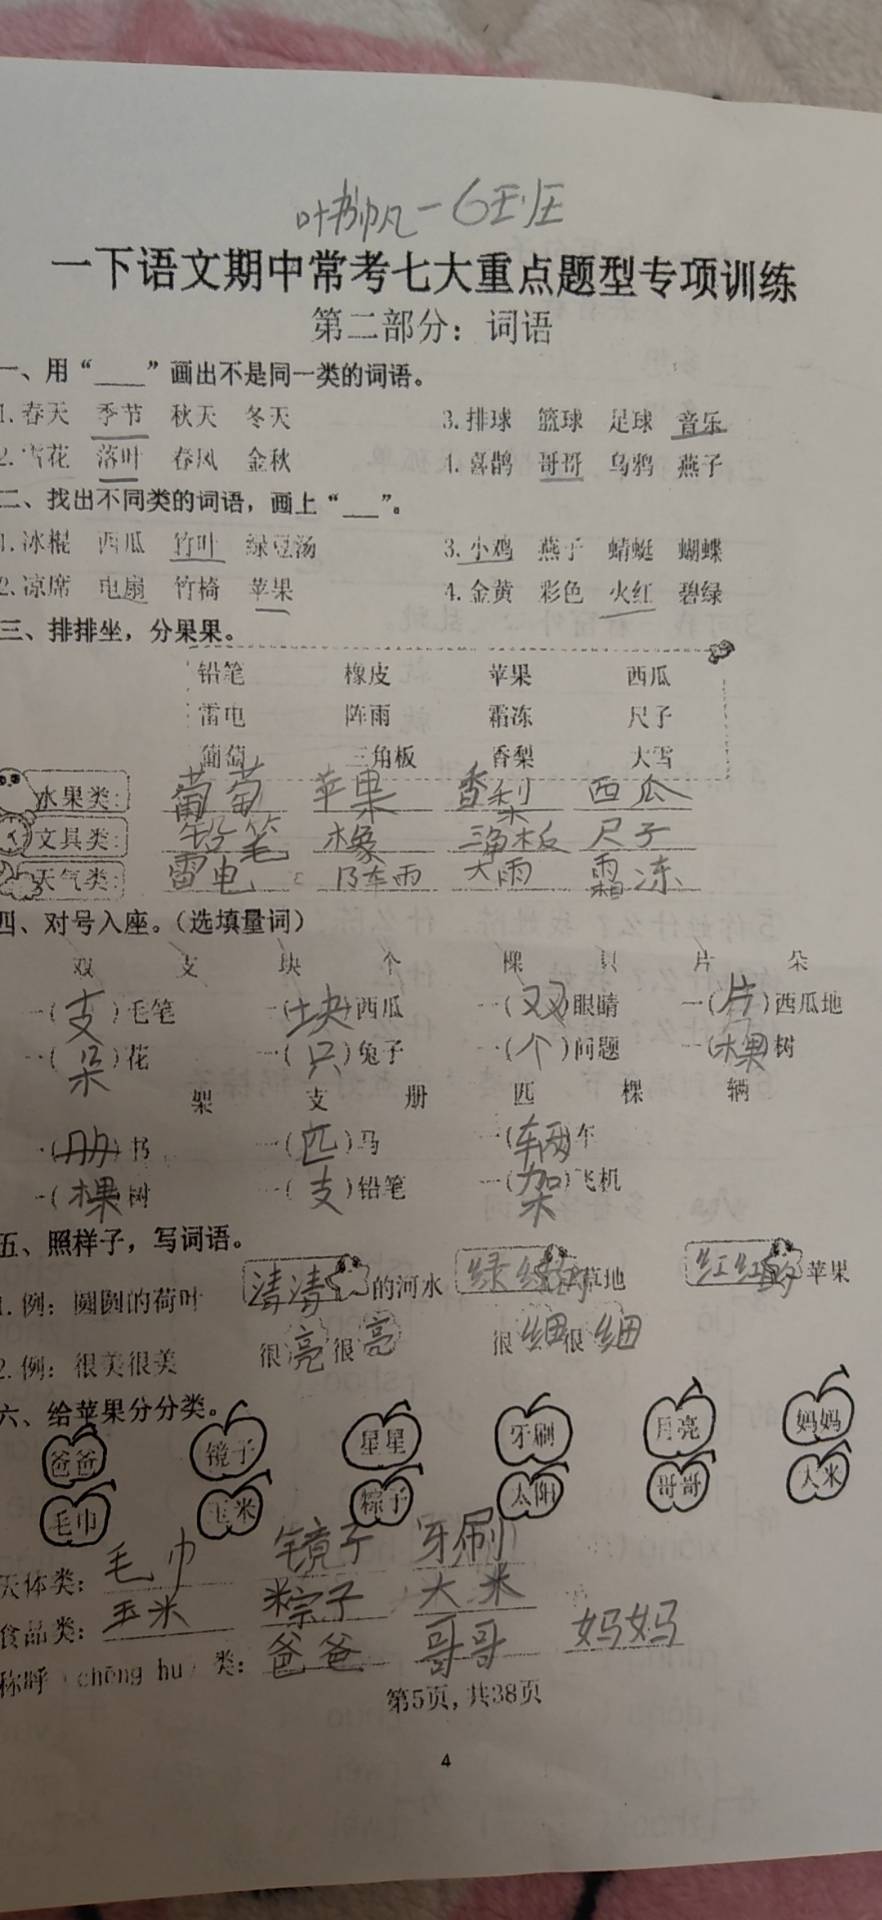 叶帅凡一6班
一下语文期中常考七大重点题型专项训练
第二部分：词语
一、用“____”画出不是同一类的词语。
1. 春天 季节 秋天 冬天 3. 排球 篮球 足球 音乐
2. 雪花 落叶 春风 金秋 4. 喜鹊 哥哥 乌鸦 燕子
二、找出不同类的词语，画上“___”。
1. 冰棍 西瓜 竹叶 绿豆汤 3. 小鸡 燕子 蜻蜓 蝴蝶
2. 凉席 电扇 竹椅 苹果 4. 金黄 彩色 火红 碧绿
三、排排坐，分果果。
铅笔 橡皮 苹果 西瓜
雷电 阵雨 霜冻 尺子
葡萄 三角板 香梨 大雪
水果类： 葡萄 苹果 香梨 西瓜
文具类： 铅笔 橡 三角板 尺子
天气类： 雷电 阵雨 大雨 霜冻
四、对号入座。（选填量词）
双 支 块 个 棵 只 片 朵
一（支）毛笔 一（块）西瓜 一（双）眼睛 一（片）西瓜地
一（朵）花 一（只）兔子 一（个）问题 一（棵）树
架 支 册 匹 棵 辆
一（册）书 一（匹）马 一（辆）车
一（棵）树 一（支）铅笔 一（架）飞机
五、照样子，写词语。
1. 例：圆圆的荷叶 清清的河水 绿绿的草地 红红的苹果
2. 例：很美很美 很亮很亮 很细很细
六、给苹果分分类。
爸爸 镜子 星星 牙刷 月亮 妈妈
毛巾 玉米 粽子 太阳 哥哥 大米
天体类： 毛巾 镜子 牙刷
食品类： 玉米 粽子 大米
称呼（chēng hu）类： 爸爸 哥哥 妈妈
第5页，共38页
4